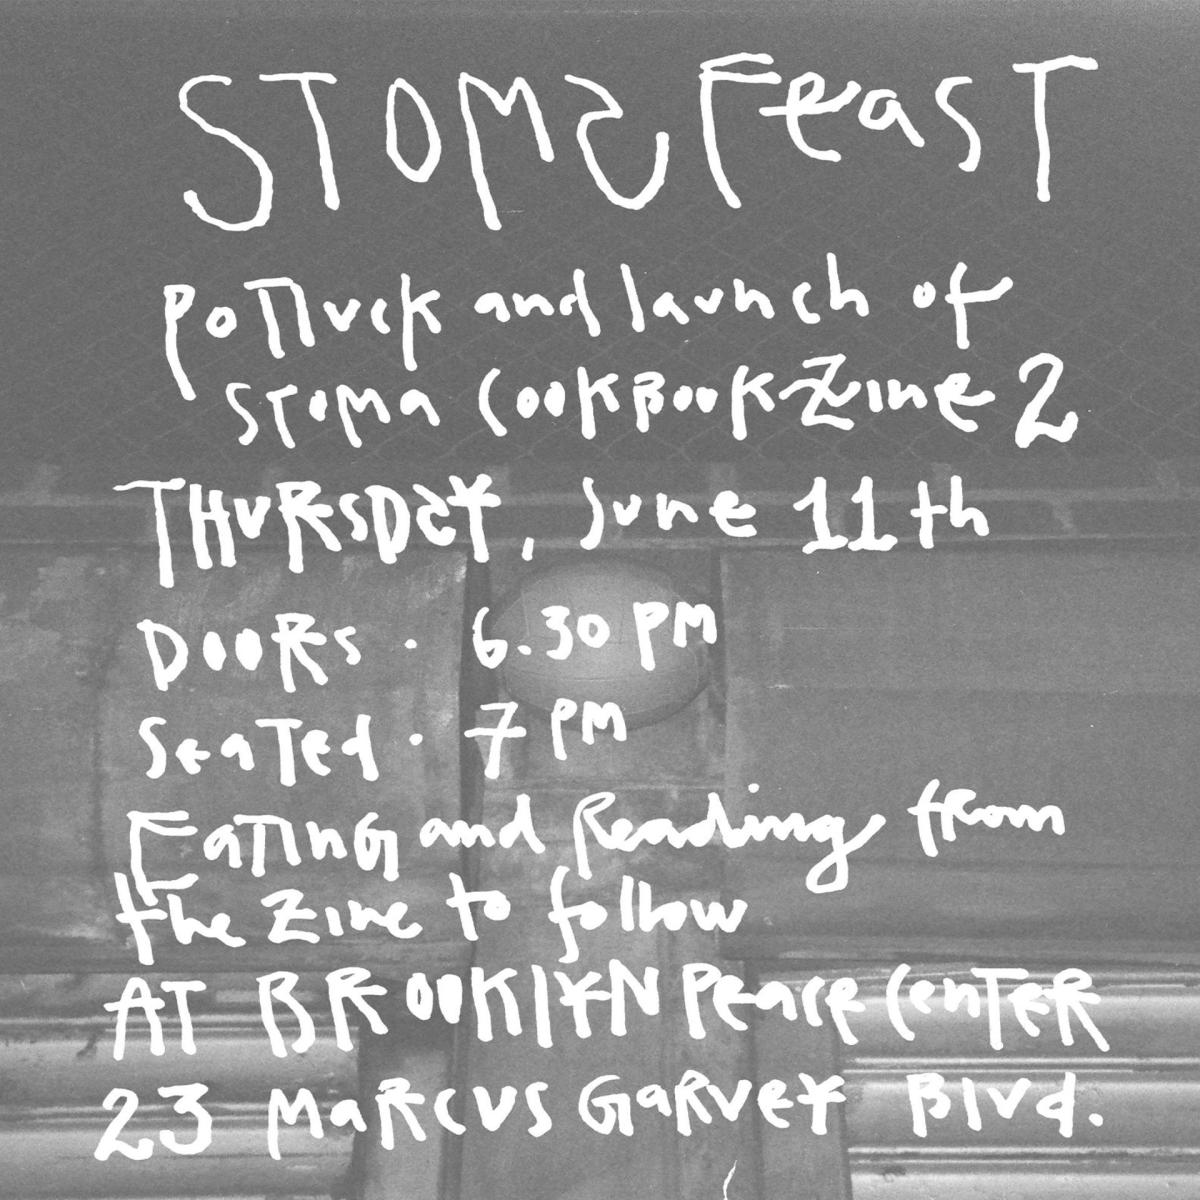 STOMA FeasT
Potluck and launch of
STOMA COOKBOOK ZINE 2
THURSDAY, June 11th
DOORS . 6.30 PM
Seated . 7 PM
EATING and Reading from
the Zine to follow
AT BROOKLYN Peace CenTER
23 MARCUS GARVEY Blvd.